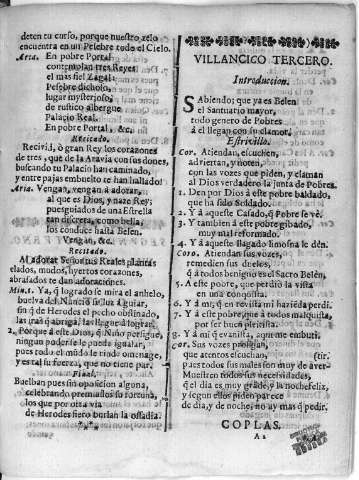 deten tu curso, porque nuestro zelo
encuentra en un Pesebre todo el Cielo.
Aria. En pobre Portal
contemplan tres Reyes
el mas fiel Zagal:
Pesebre dicholo,
lugar mysterioso,
de rustico albergue
Palacio Real.
En pobre Portal, &c.
Recitado.
Recivid, ò gran Rey los corazones
de tres, que de la Aravia con sus dones,
buscando tu Palacio han caminado,
y entre pajas embuelto le han hallado:
Aria. Vengan, vengan à adorar,
al que es Dios, y naze Rey;
pues guiados de una Estrella
tan discreta, como bella,
los conduce hasta Belen.
Vengan, &c.
Recitado.
Al adorar Señor tus Reales plantas
elados, mudos, yertos corazones,
abrasados te dan adoraciones.
Aria. 1. Ya, q logrado se mira el anhelo,
buelva del Nuncio su luz à guiar,
sin q de Herodes el pecho obstinado,
las iras q abriga, las llegue à lograr.
2. Porque à este Dios, q Niño persigue,
ningun poder se le puede igualar,
pues todo el mũdo le rinde omenage,
y es tal su fuerza, que no tiene par.
Final.
Buelban pues sin oposicion alguna,
celebrando premiados su fortuna,
los que por otra via
de Herodes fiero burlan la osadia.
VILLANCICO TERCERO.
Introduccion.
Sabiendo; que ya es Belen
el Santuario mayor,
todo genero de Pobres
à èl llegan con su clamor.
Estrivillo.
Cor. Atiendan, escuchen,
adviertan, y noten,
con las vozes que piden, y claman
al Dios verdadero la junta de Pobres.
1. Den por Dios à este pobre baldado,
que ha sido Soldado.
2. Y à aqueste Casado, q Pobre se vè.
3. Y tambien à este pobre gibado,
muy mal reformado.
4. Y à aqueste llagado limosna le dèn.
Coro. Atiendan sus vozes,
remedien sus duelos,
q à todos benigno es el Sacro Belèn.
5. A este pobre, que perdiò la vista
en una conquista.
6. Y à mi, q en revista mi hazieda perdi.
7. Y à este pobre, que à todos malquista,
por ser buen pleitista.
8. Y à mi q envista, aqui me embuti.
Cor. Sus vozes prosigan,
que atentos escuchan, (tir.
pues todos sus males son muy de aver-
Muestren todos sus necesidades,
q el dia es muy grãde, y la noche feliz,
y segun ellos piden parece
de dia, y de noche, no ay mas q pedir.
COPLAS.
A 2